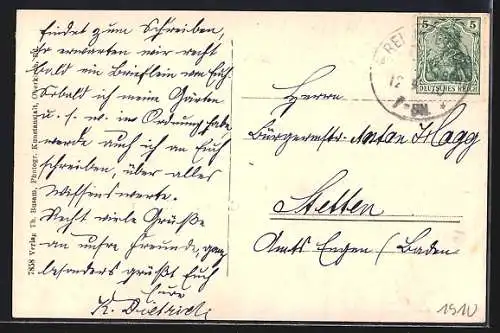 findet zum Schreiben,
so erwarten wir recht
bald ein Brieflein von Euch.
Sobald ich meine Gärten
u. s. w. in Ordnung habe
werde auch ich an Euch
schreiben, über alles
Wissenswerte.
Recht viele Grüße
an unsre Freunde, ganz
besonders grüßt Euch
Eure
K. Dietrich
7858 Verlag Th. Busam, Photogr. Kunstanstalt, Oberkirch
5 5
DEUTSCHES REICH
12
Herrn
Bürgermstr. Anton Hagg
Stetten
Amts Engen (Baden
1910